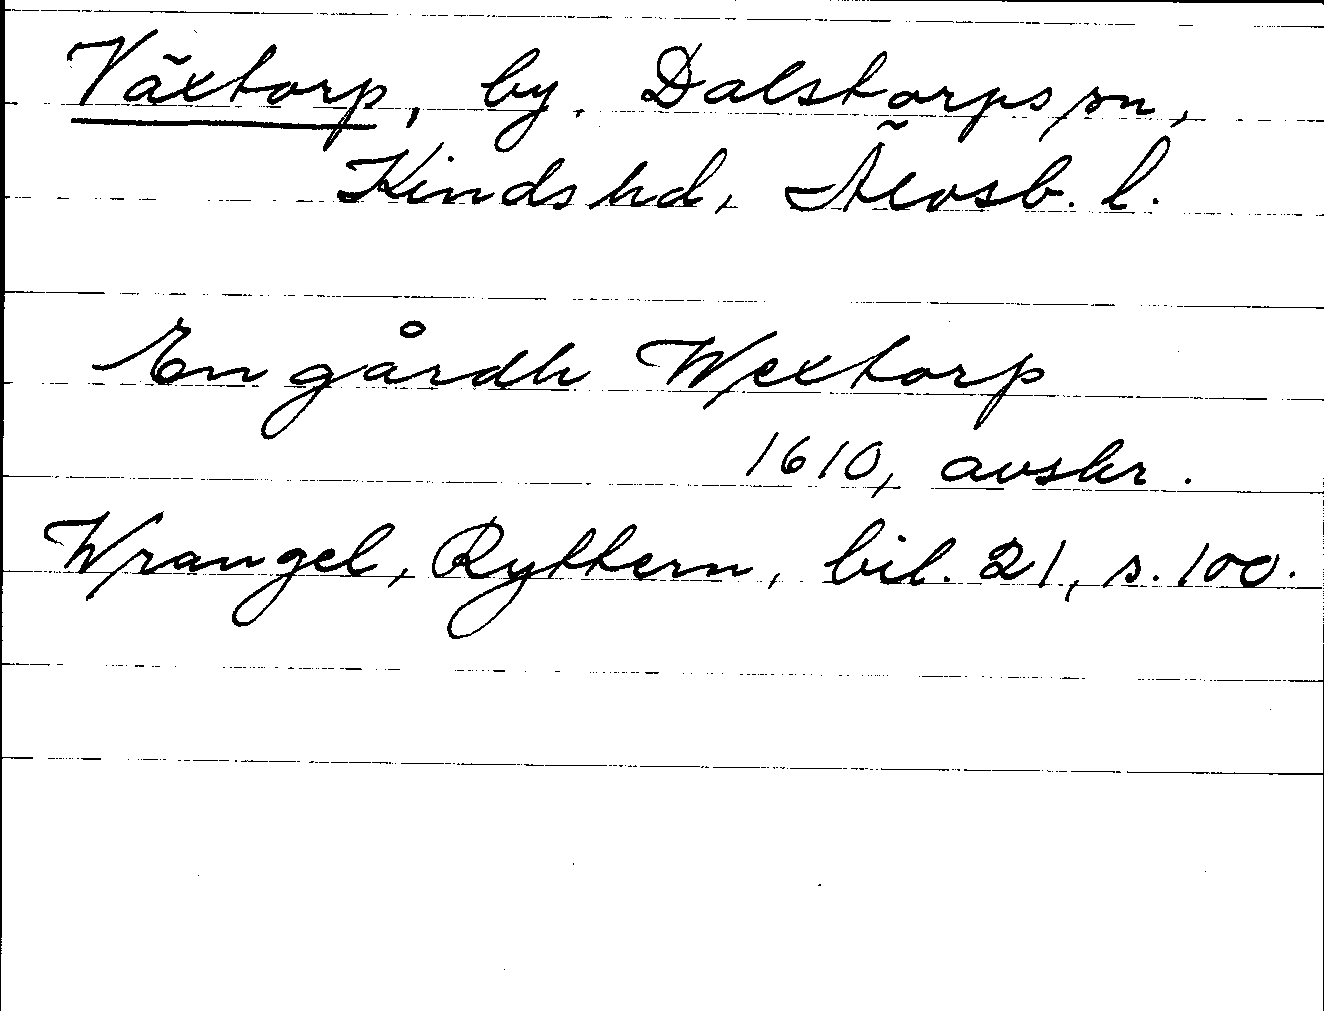 Växtorp, by. Dalstorps sn,
Kinds hd, Älvsb. l.
En gårdh Wextorp
1610, avskr.
Wrangel, Ryttern, bil. 21, s. 100.